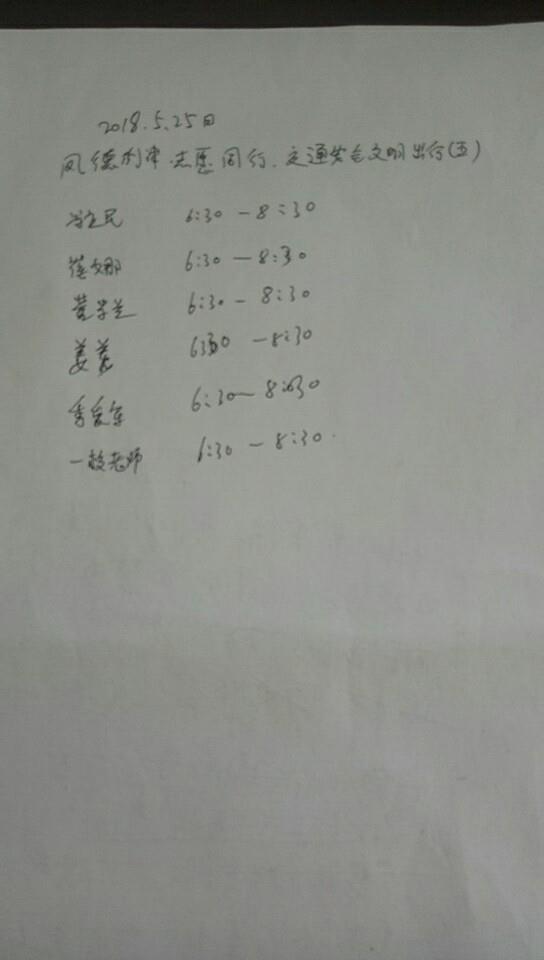 2018.5.25日
凤德利津 志愿同行. 交通安全文明出行(五)
6:30 — 8:30
崔文娜 6:30 — 8:30
6:30 — 8:30
姜 6:30 — 8:30
6:30 — 8:30
一校老师 6:30 — 8:30